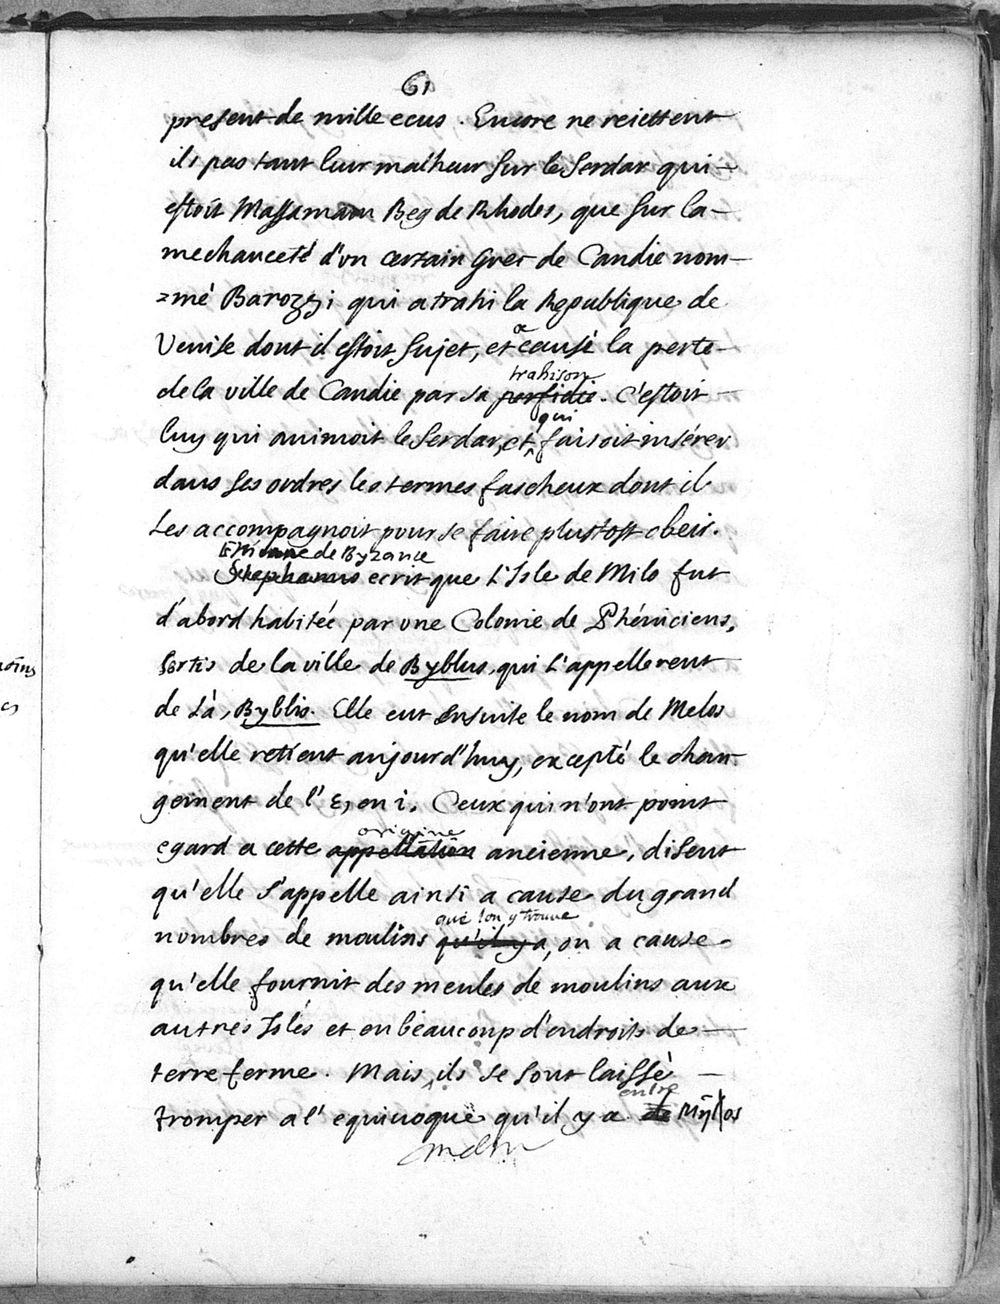 61
present de mille ecus. Encore ne reiettent
ils pas tant leur malheur sur le Serdar qui
estoit Massamam Beg de Rhodes, que sur la
mechanceté d'vn certain Grec de Candie nom-
=mé Barozzi qui a trahi la Republique de
Venise dont il estoit sujet, et a causé la perte
trahison
de la ville de Candie par sa perfidie. C'estoit
qui
luy qui animoit le Serdar, et faisoit insérer
dans ses ordres les termes fascheux dont il
les accompagnoit pour se faire plustost obeir.
Etienne de Byzance
Stephanus ecrit que l'Isle de Milo fut
d'abord habitée par vne Colonie de Phéniciens,
sortis de la ville de Byblus, qui l'appellerent
de là, Byblis. Elle eut ensuite le nom de Melos
qu'elle retient aujourd'huy, excepté le chan-
gement de l'ε, en i. Ceux qui n'ont point
origine
egard a cette appellation ancienne, disent
qu'elle s'appelle ainsi a cause du grand
que l'on y trouve
nombres de moulins qu'il y a, ou a cause
qu'elle fournit des meules de moulins aux
autres Isles et en beaucoup d'endroits de
terre ferme. Mais, ils se sont laissé
entre
tromper a l'equiuoque qu'il y a de Mylos